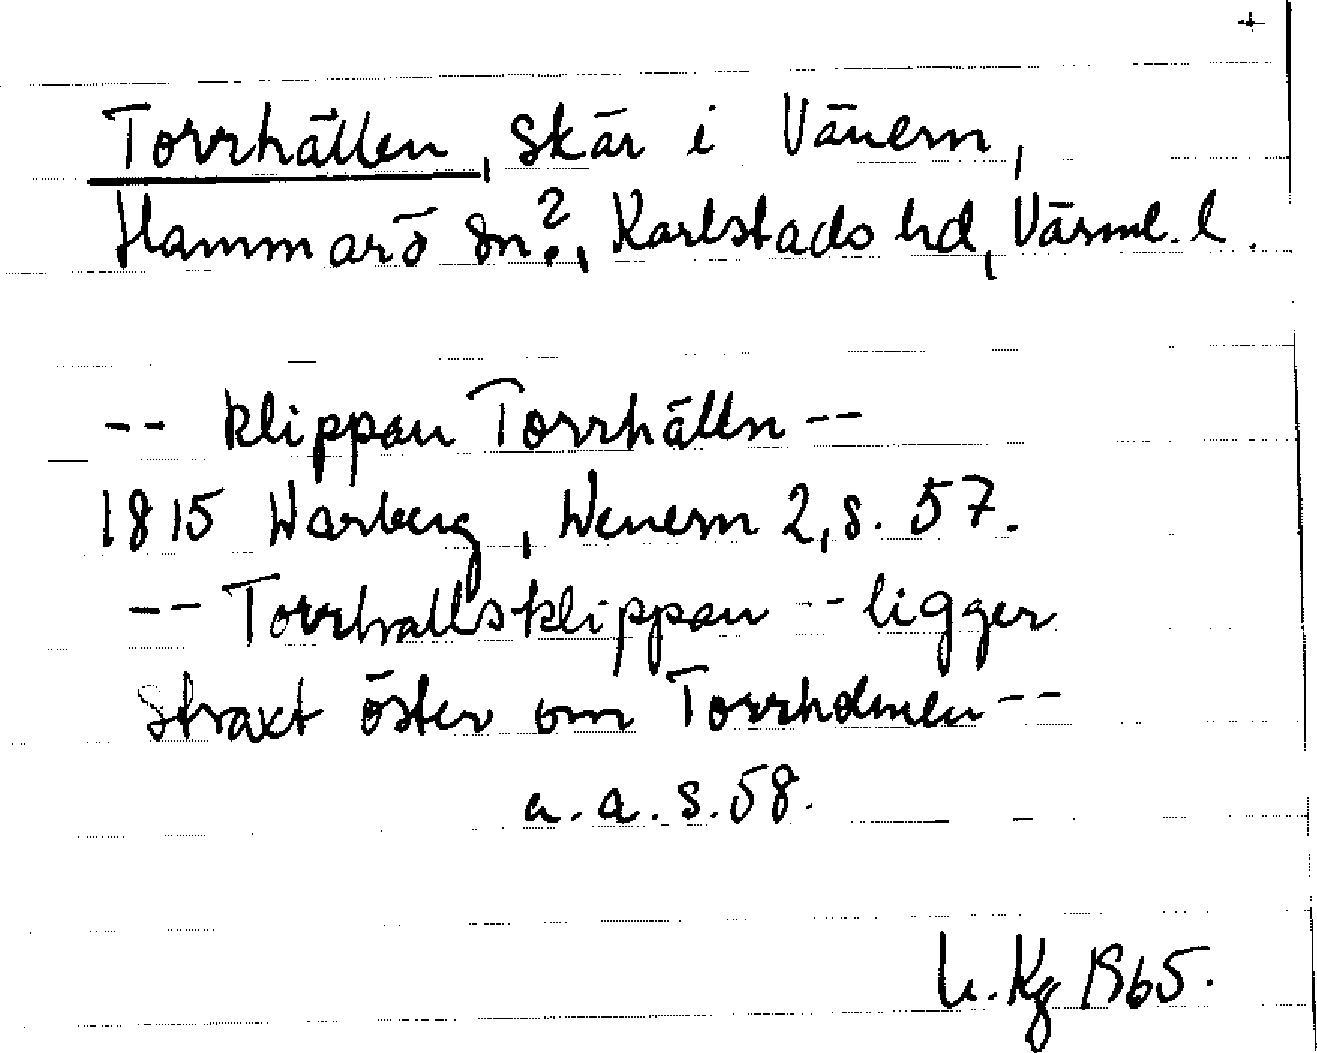 +
Torrhällen, skär i Vänern,
Hammarö sn?, Karlstads hd, Värml. l.
-- klippan Torrhälln --
1815 Warberg, Wenern 2, s. 57.
-- Torrhallsklippan -- ligger
straxt öster om Torrholmen --
a. a. s. 58.
Kg 1965.